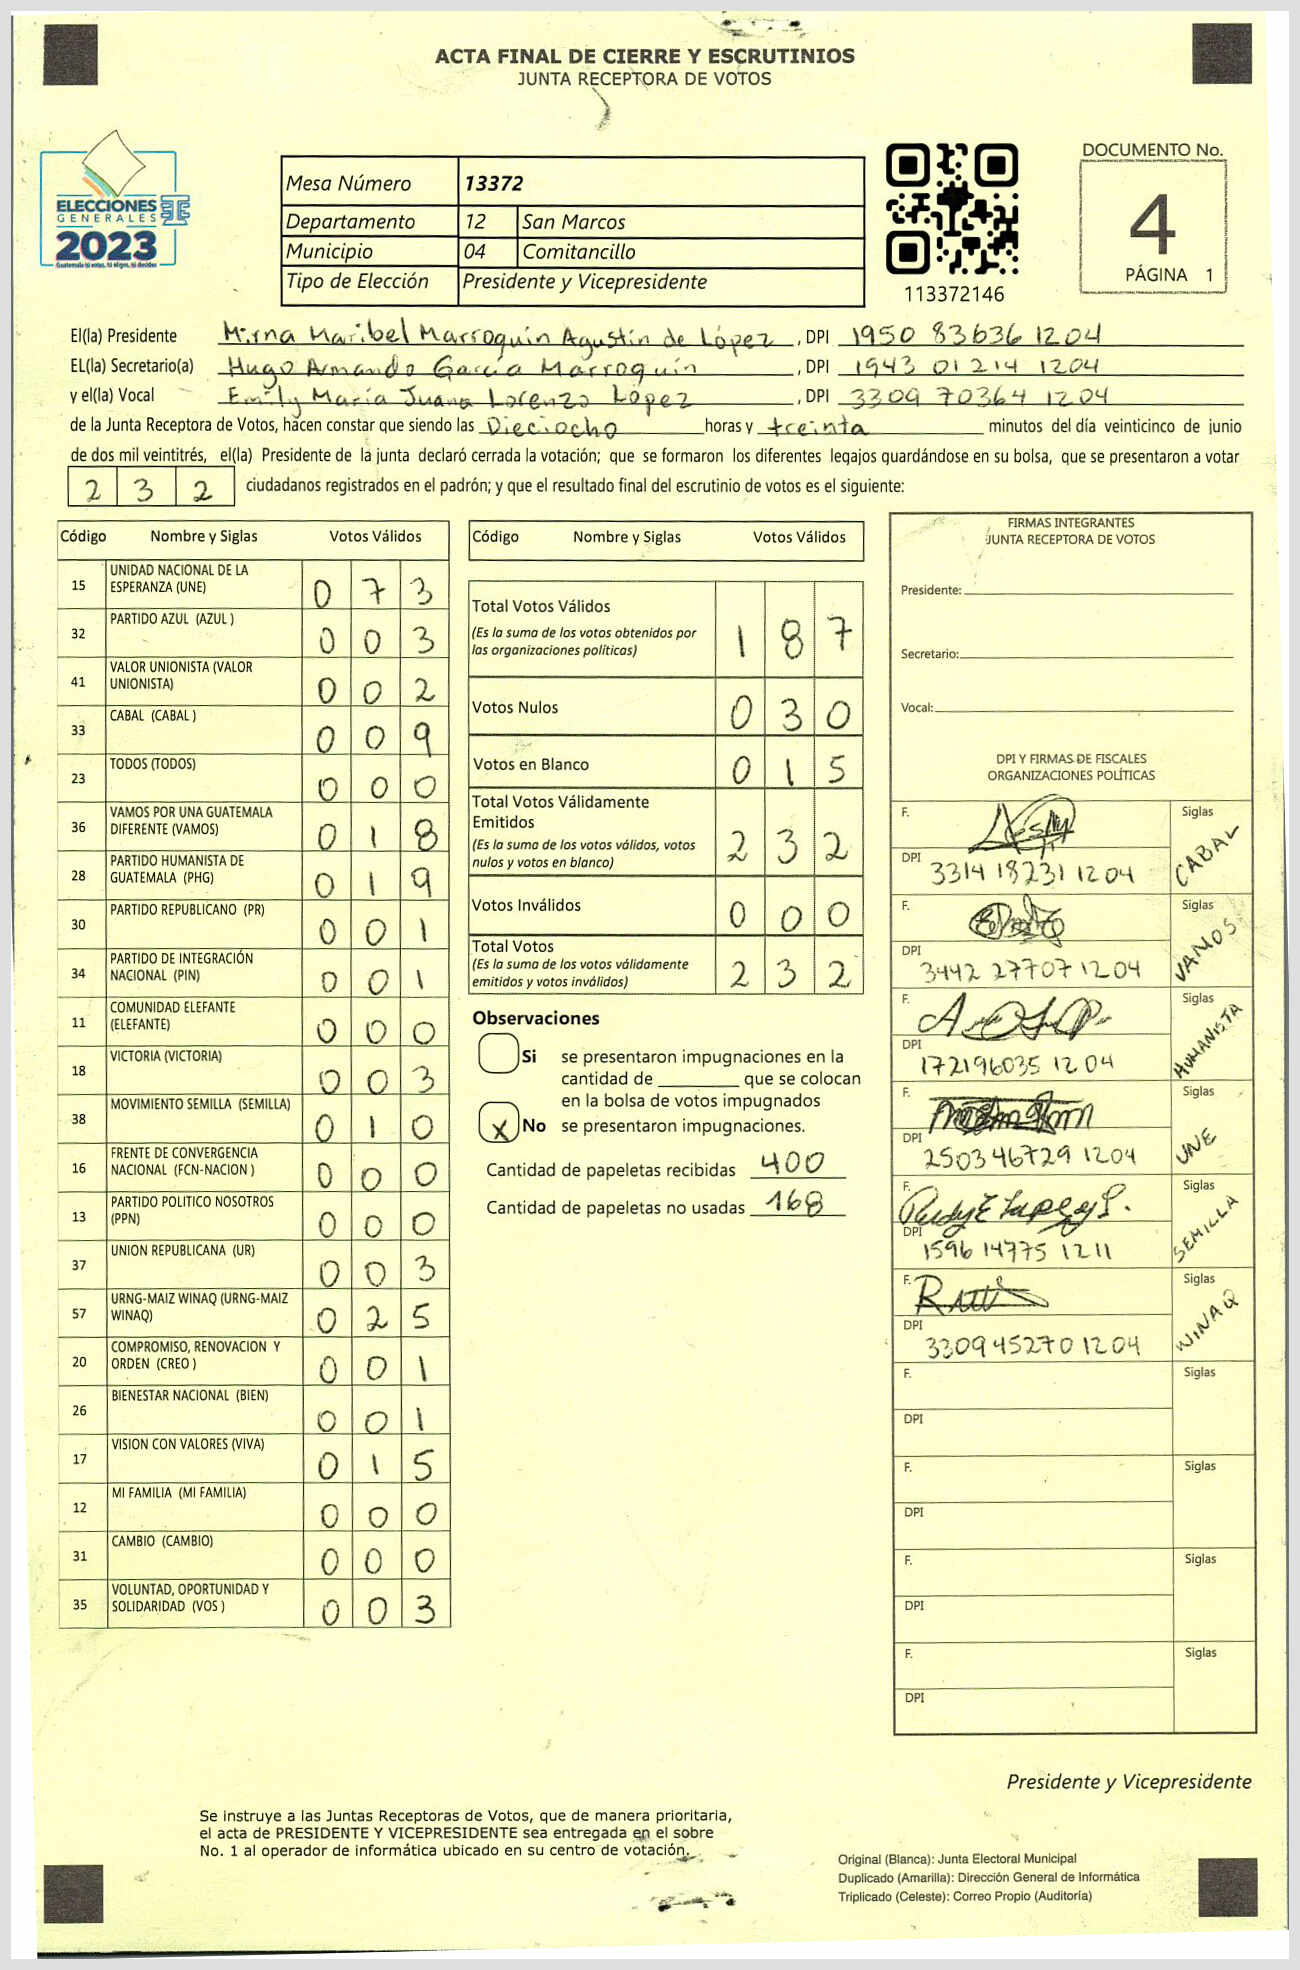 ACTA FINAL DE CIERRE Y ESCRUTINIOS
JUNTA RECEPTORA DE VOTOS
ELECCIONES
GENERALES
2023
Guatemala tú votas, tú eliges, tú decides
Mesa Número 13372
Departamento 12 San Marcos
Municipio 04 Comitancillo
Tipo de Elección Presidente y Vicepresidente
113372146
DOCUMENTO No.
4
PÁGINA 1
El(la) Presidente Mirna Maribel Marroquín Agustín de López, DPI 1950 83636 1204
EL(la) Secretario(a) Hugo Armando García Marroquín, DPI 1943 01214 1204
y el(la) Vocal Emily María Juana Lorenzo López, DPI 3309 70364 1204
de la Junta Receptora de Votos, hacen constar que siendo las Dieciocho horas y treinta minutos del día veinticinco de junio
de dos mil veintitrés, el(la) Presidente de la junta declaró cerrada la votación; que se formaron los diferentes legajos guardándose en su bolsa, que se presentaron a votar
232 ciudadanos registrados en el padrón; y que el resultado final del escrutinio de votos es el siguiente:
Código Nombre y Siglas Votos Válidos
15 UNIDAD NACIONAL DE LA ESPERANZA (UNE) 0 7 3
32 PARTIDO AZUL (AZUL ) 0 0 3
41 VALOR UNIONISTA (VALOR UNIONISTA) 0 0 2
33 CABAL (CABAL ) 0 0 9
23 TODOS (TODOS) 0 0 0
36 VAMOS POR UNA GUATEMALA DIFERENTE (VAMOS) 0 1 8
28 PARTIDO HUMANISTA DE GUATEMALA (PHG) 0 1 9
30 PARTIDO REPUBLICANO (PR) 0 0 1
34 PARTIDO DE INTEGRACIÓN NACIONAL (PIN) 0 0 1
11 COMUNIDAD ELEFANTE (ELEFANTE) 0 0 0
18 VICTORIA (VICTORIA) 0 0 3
38 MOVIMIENTO SEMILLA (SEMILLA) 0 1 0
16 FRENTE DE CONVERGENCIA NACIONAL (FCN-NACION ) 0 0 0
13 PARTIDO POLITICO NOSOTROS (PPN) 0 0 0
37 UNION REPUBLICANA (UR) 0 0 3
57 URNG-MAIZ WINAQ (URNG-MAIZ WINAQ) 0 2 5
20 COMPROMISO, RENOVACION Y ORDEN (CREO ) 0 0 1
26 BIENESTAR NACIONAL (BIEN) 0 0 1
17 VISION CON VALORES (VIVA) 0 1 5
12 MI FAMILIA (MI FAMILIA) 0 0 0
31 CAMBIO (CAMBIO) 0 0 0
35 VOLUNTAD, OPORTUNIDAD Y SOLIDARIDAD (VOS ) 0 0 3
Código Nombre y Siglas Votos Válidos
Total Votos Válidos 1 8 7
(Es la suma de los votos obtenidos por
las organizaciones políticas)
Votos Nulos 0 3 0
Votos en Blanco 0 1 5
Total Votos Válidamente
Emitidos 2 3 2
(Es la suma de los votos válidos, votos
nulos y votos en blanco)
Votos Inválidos 0 0 0
Total Votos 2 3 2
(Es la suma de los votos válidamente
emitidos y votos inválidos)
Observaciones
Si se presentaron impugnaciones en la
cantidad de ________ que se colocan
en la bolsa de votos impugnados
X No se presentaron impugnaciones.
Cantidad de papeletas recibidas 400
Cantidad de papeletas no usadas 168
FIRMAS INTEGRANTES
JUNTA RECEPTORA DE VOTOS
Presidente:
Secretario:
Vocal:
DPI Y FIRMAS DE FISCALES
ORGANIZACIONES POLÍTICAS
F. Siglas CABAL
DPI 3314 18231 1204
F. Siglas VAMOS
DPI 3442 27707 1204
F. Siglas HUMANISTA
DPI 172196035 1204
F. Siglas UNE
DPI 2503 46729 1204
F. Siglas SEMILLA
DPI 1596 14775 1211
F. Siglas WINAQ
DPI 3309 45270 1204
F. Siglas
DPI
F. Siglas
DPI
F. Siglas
DPI
F. Siglas
DPI
Presidente y Vicepresidente
Se instruye a las Juntas Receptoras de Votos, que de manera prioritaria,
el acta de PRESIDENTE Y VICEPRESIDENTE sea entregada en el sobre
No. 1 al operador de informática ubicado en su centro de votación.
Original (Blanca): Junta Electoral Municipal
Duplicado (Amarilla): Dirección General de Informática
Triplicado (Celeste): Correo Propio (Auditoría)